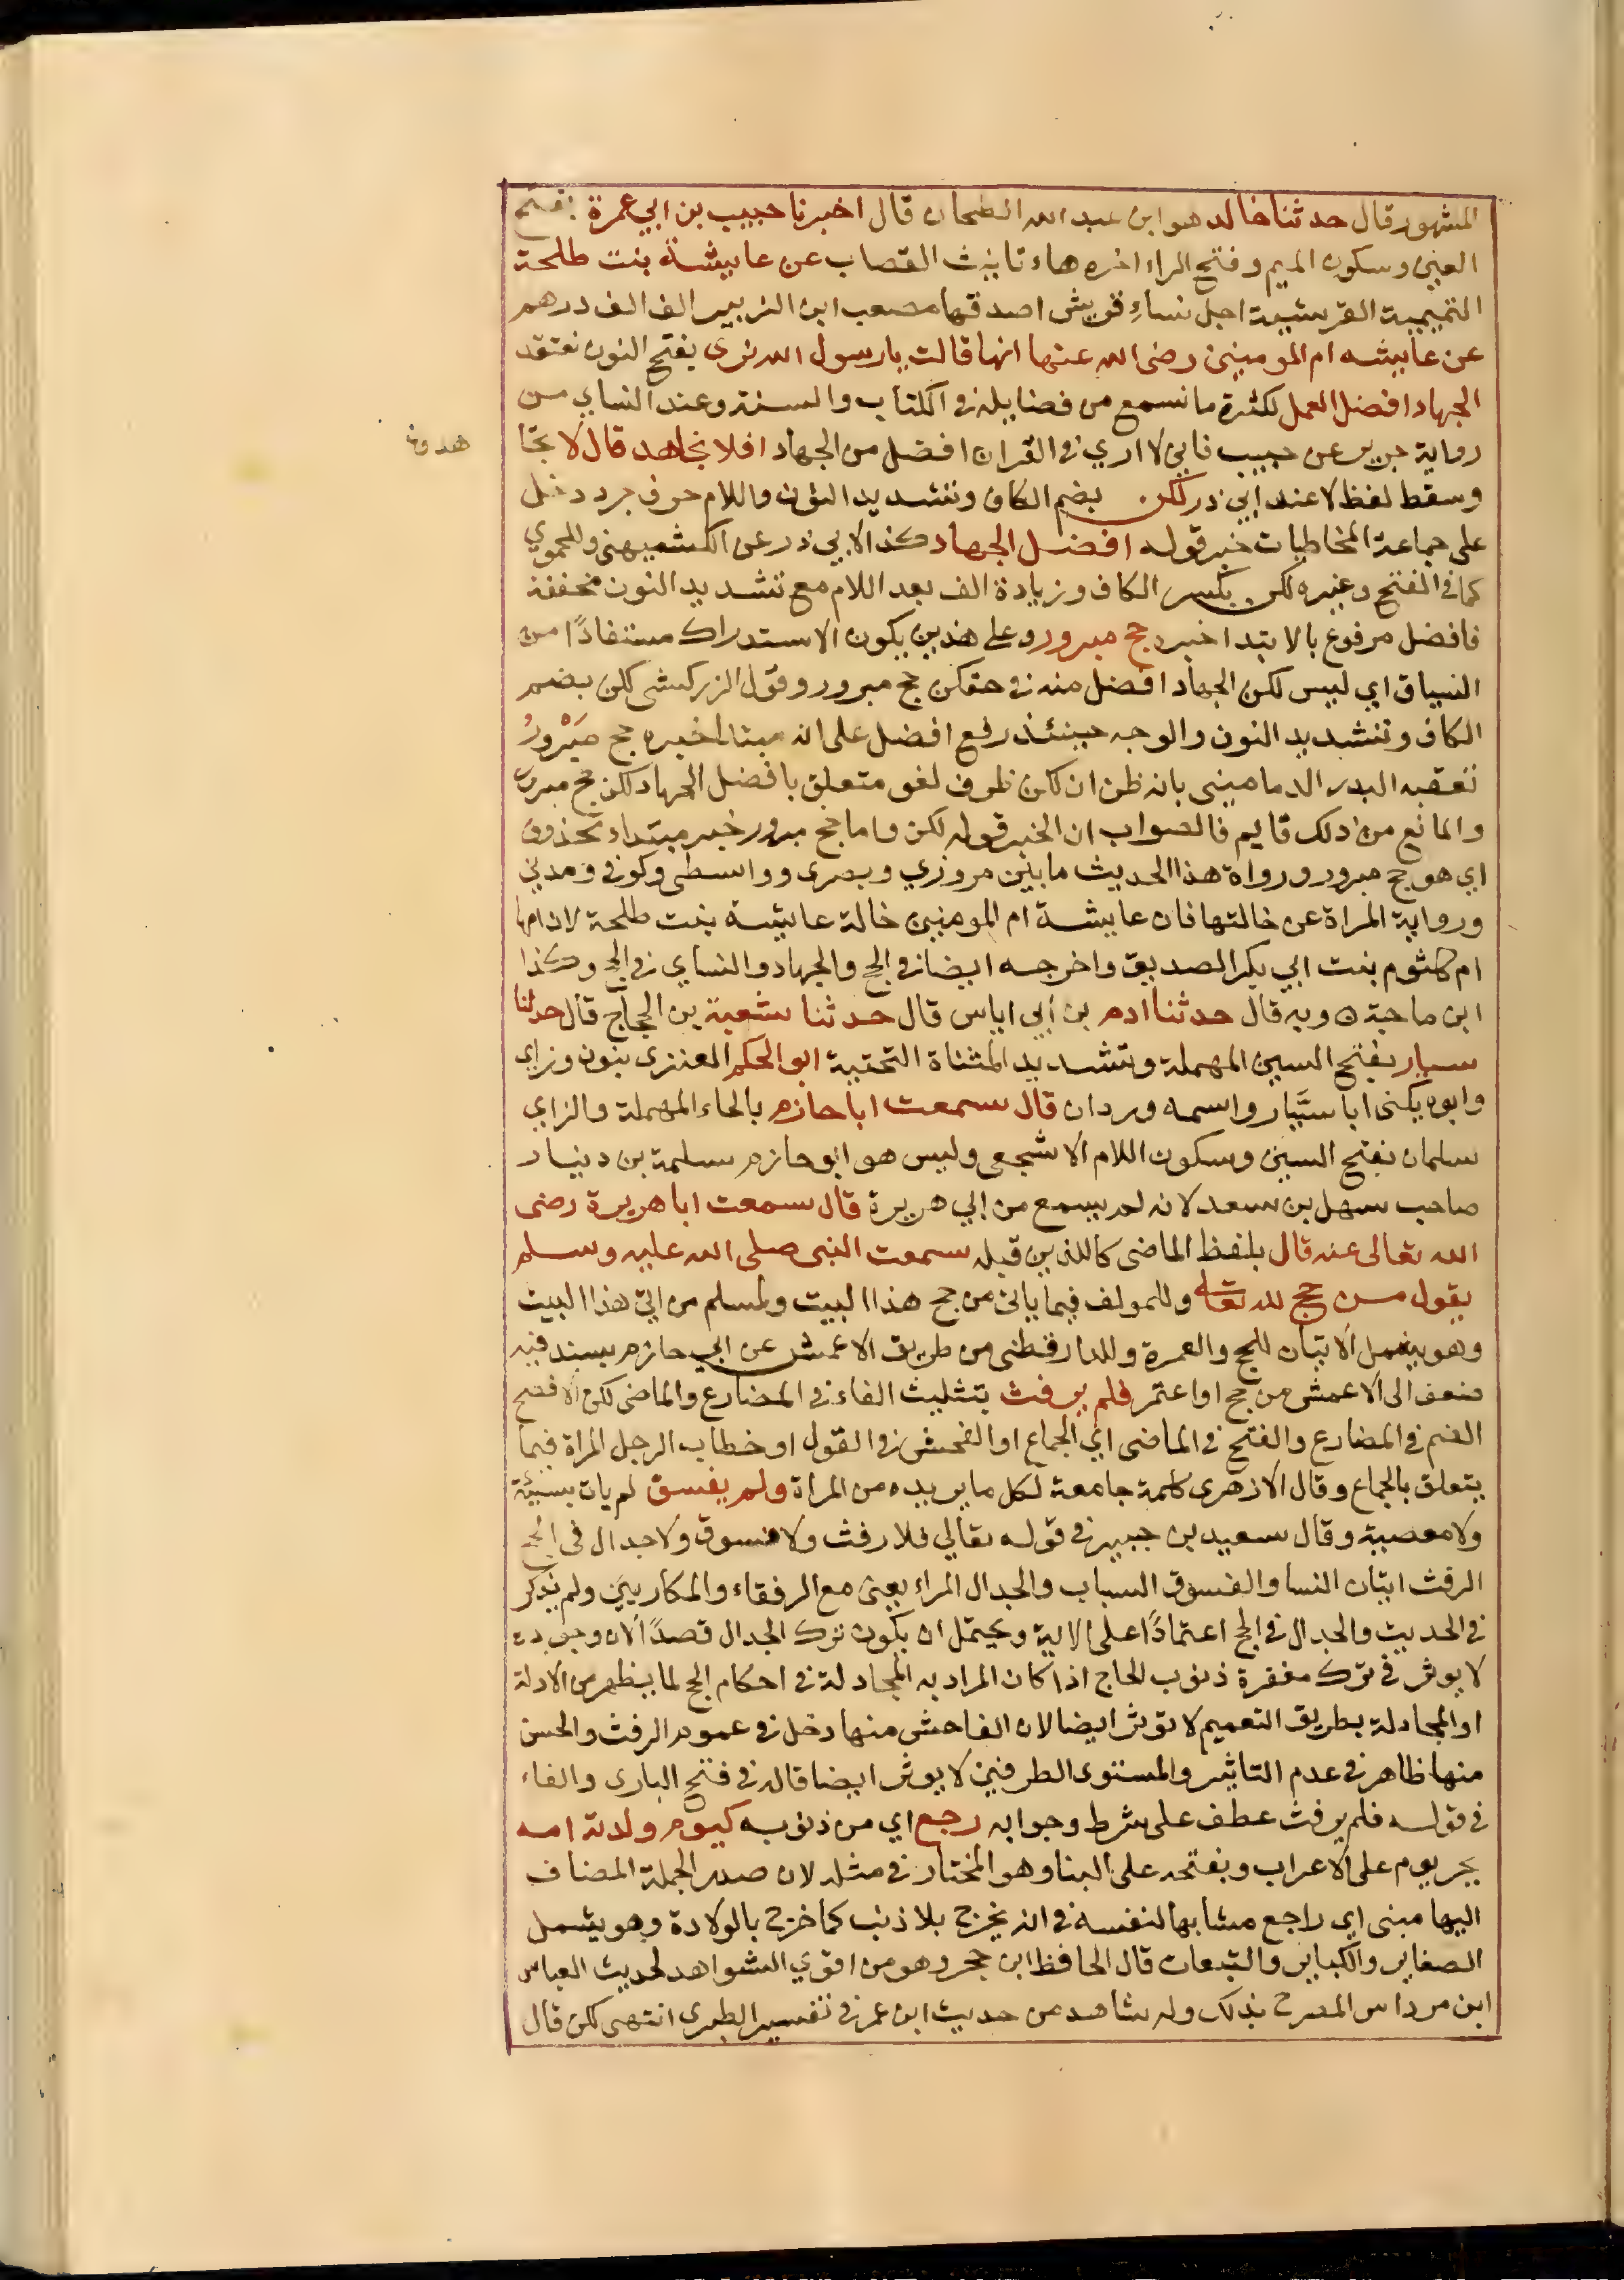 المشهور قال حدثنا خالد هو ابن عبد الله الطحان قال اخبرنا حبيب بن ابي عمرة بفتح
العين وسكون الميم وفتح الراء اخره هاء تانيث القصاب عن عايشة بنت طلحة
التميمية القرشية اجل نساءِ قريش اصدقها مصعب ابن الزبير الف الف درهم
عن عايشه ام المومنين رضى الله عنها انها قالت يارسول الله نرى بفتح النون نعتقد
الجهاد افضل العمل لكثرة ما نسمع من فضايله في الكتاب والسنة وعند النساي من
رواية جرير عن حبيب فاني لا اري في القران افضل من الجهاد افلا نجاهد قال لا تجا
هدون
وسقط لفظ لا عند ابي ذر لكن بضم الكاف وتشديد النون واللام حرف جر دخل
على جماعة المخاطبات خبر قوله افضل الجهاد كذا لابي ذر عن الكشميهنى وللحموي
كما في الفتح وغيره لكن بكسر الكاف وزيادة الف بعد اللام مع تشديد النون مخففة
فافضل مرفوع بالابتدا خبره حج مبرور وعلى هذين يكون الاستدراك مستفادًا من
السياق اي ليس لكن الجهاد افضل منه في حقكن حج مبرور وقول الزركشى لكن بضم
الكاف وتشديد النون والوجه حينئذ رفع افضل على انه مبتدا خبره حج مَبْرورُ
تعقبه البدر الدمامينى بانه ظن ان لكن ظرف لغو متعلق بافضل الجهاد لكن حج مبرور
والمانع من ذلك قايم فالصواب ان الخبر قوله لكن واما حج مبرور خبر مبتداء محذوف
اي هو حج مبرور ورواة هذا الحديث ما بين مروزي وبصرى وواسطى وكوفي ومدني
ورواية المراة عن خالتها فان عايشة ام المومنين خالة عايشة بنت طلحة لان امها
ام كلثوم بنت ابي بكر الصديق واخرجه ايضا في الحج والجهاد والنساي في الحج وكذا
ابن ماجة ه وبه قال حدثنا ادم بن أبي اياس قال حدثنا شعبة بن الحجاج قال حدثنا
سيار بفتح السين المهملة وتشديد المثناة التحتية ابو الحكم العنزى بنون وزاي
وابوه يكنى ابا سَيَّار واسمه وردان قال سمعت ابا حازم بالحاء المهملة والزاي
سلمان بفتح السين وسكون اللام الاشجعى وليس هو ابو حازم سلمة بن دينار
صاحب سهل بن سعد لانه لم يسمع من ابي هريرة قال سمعت ابا هريرة رضى
الله تعالى عنه قال بلفظ الماضى كاللذين قبله سمعت النبى صلى الله عليه وسلم
يقول من حج لله تعالى وللمولف فيما ياتى من حج هذا البيت ولمسلم من اتى هذا البيت
وهو يشمل الاتيان للحج والعمرة وللدارقطنى من طريق الاعمش عن ابي حازم بسند فيه
ضعف الى الاعمش من حج او اعتمر فلم يرفث بتثليث الفاء في المضارع والماضى لكن الافصح
الضم في المضارع والفتح في الماضى اي الجماع او الفحش في القول او خطاب الرجل المراة فيما
يتعلق بالجماع وقال الازهرى كلمة جامعة لكل ما يريده من المراة ولم يفسق لم يات بسيئة
ولا معصية وقال سعيد بن جبير في قوله تعالي فلا رفث ولا فسوق ولا جدال في الحج
الرفث اتيان النسا والفسوق السباب والجدال المراء يعنى مع الرفقاء والمكاريين ولم يذكر
في الحديث والجدال في الحج اعتمادًا على الاية ويحتمل ان يكون ترك الجدال قصدًا لان وجوده
لا يوثر في ترك مغفرة ذنوب الحاج اذا كان المراد به المجادلة في احكام الحج لما يظهر من الادلة
او المجادلة بطريق التعميم لا توثر ايضا لان الفاحش منها دخل في عموم الرفث والحسن
منها ظاهر في عدم التاثير والمستوى الطرفين لا يوثر ايضا قاله في فتح البارى والفاء
في قوله فلم يرفث عطف على شرط وجوابه رجع اي من ذنوبه كيوم ولدته امه
بجر يوم على الاعراب وبفتحه على البنا وهو المختار في مثله لان صدر الجملة المضاف
اليها مبنى اي راجع مشابها لنفسه في انه يخرج بلا ذنب كما خرج بالولادة وهو يشمل
الصغاير والكباير والتبعات قال الحافظ ابن حجر وهو من اقوي الشواهد لحديث العباس
ابن مرداس المصرح بذلك وله شاهد من حديث ابن عمر في تفسير الطبرى انتهى لكن قال